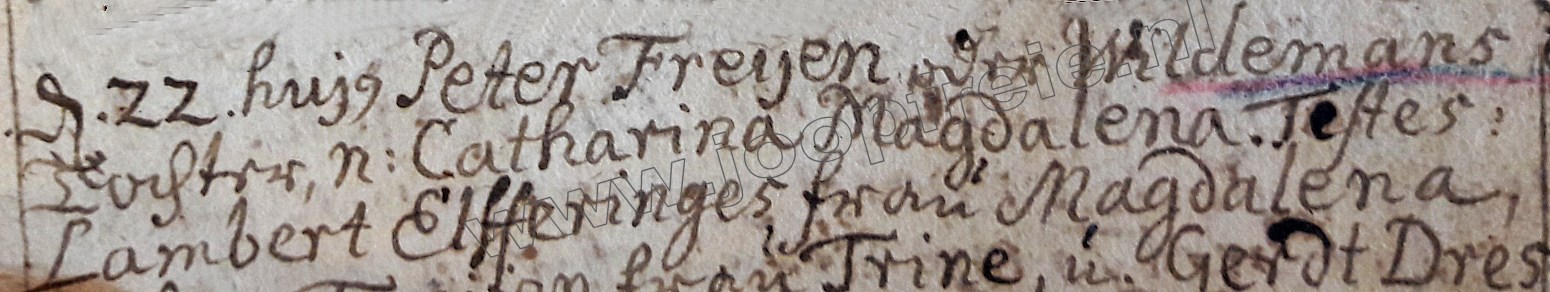 D. 22. hujq Peter Freyen oder Wildemans
Tochter, n: Catharina Magdalena. Testes:
Lambert Elfferinges frau Magdalena,
frau Trine, u. Gerdt Dres
www.jooptreie.nl